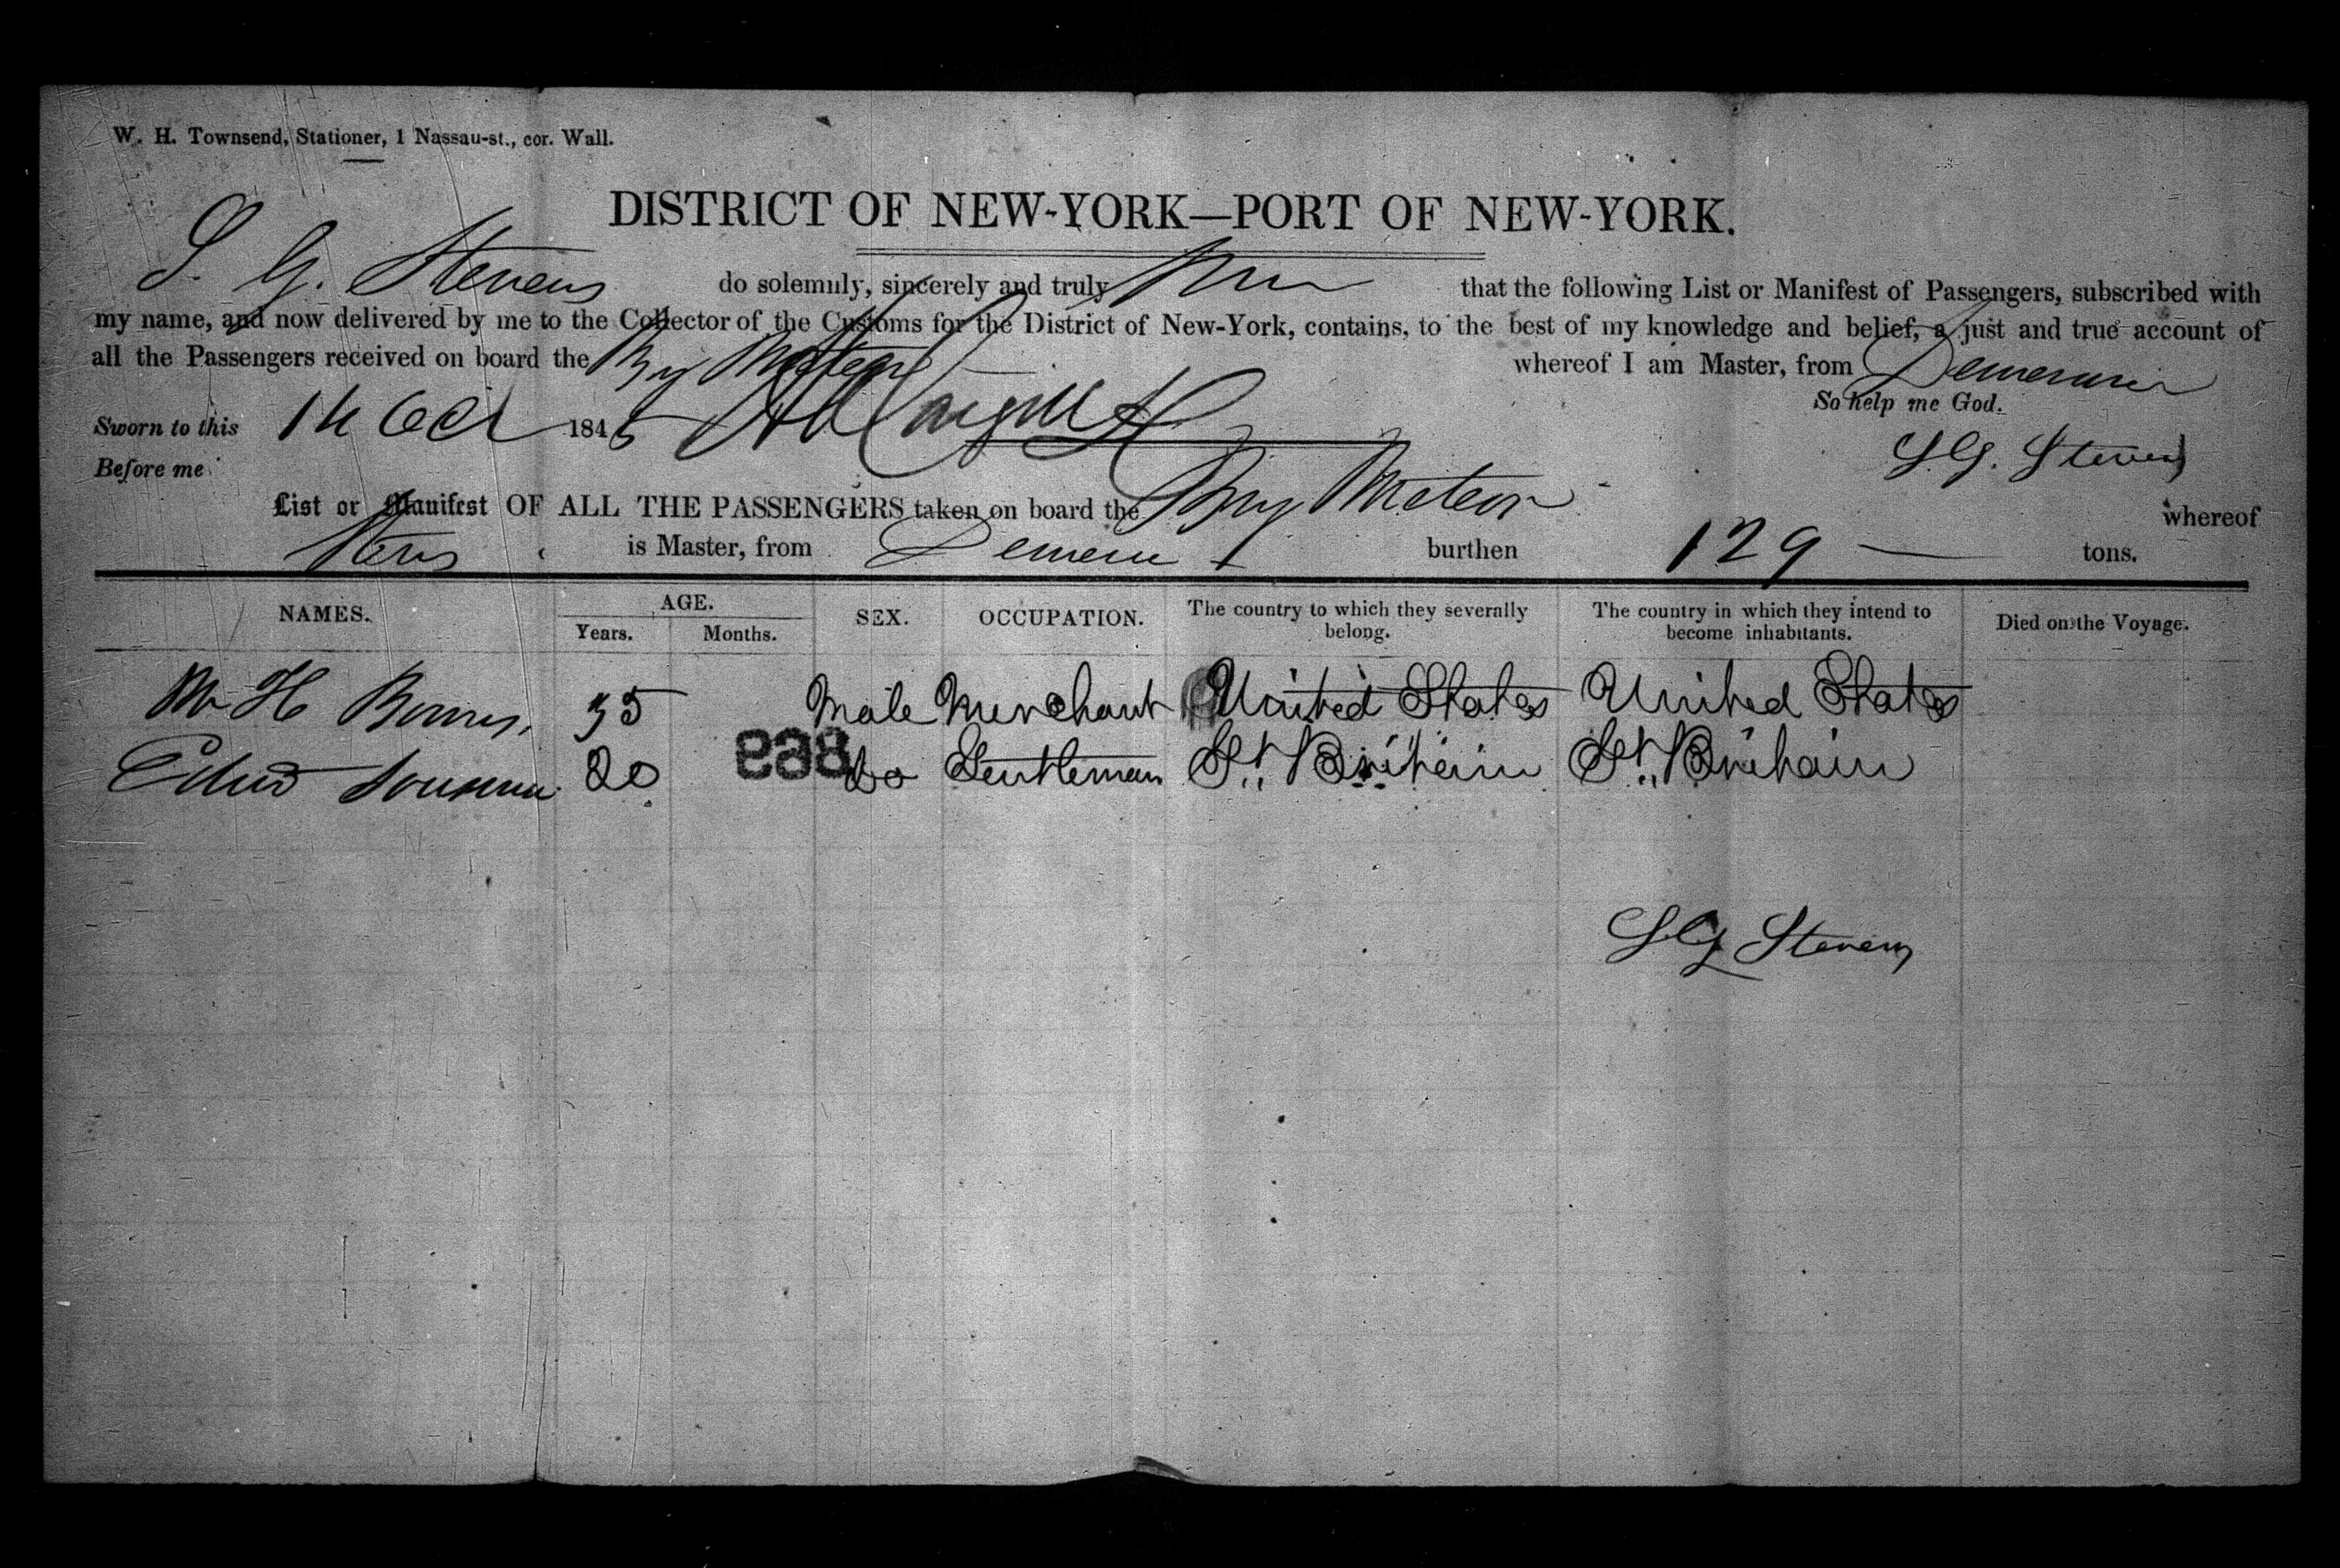 W. H. Townsend, Stationer, 1 Nassau-st., cor. Wall.
DISTRICT OF NEW-YORK—PORT OF NEW-YORK.
S. G. Stevens do solemnly, sincerely and truly that the following List or Manifest of Passengers, subscribed with
my name, and now delivered by me to the Collector of the Customs for the District of New-York, contains, to the best of my knowledge and belief, a just and true account of
all the Passengers received on board the Brig Meteor whereof I am Master, from Demerara
So help me God.
Sworn to this 14 Oct 1845
S.G. Stevens
Before me
List or Manifest OF ALL THE PASSENGERS taken on board the Brig Meteor whereof
is Master, from burthen 129 tons.
NAMES. AGE. SEX. OCCUPATION. The country to which they severally belong. The country in which they intend to become inhabitants. Died on the Voyage.
Years. Months.
H 35 Male Merchant United States United States
20 Do Gentleman Gt. Britain Gt. Britain
869
S.G. Stevens